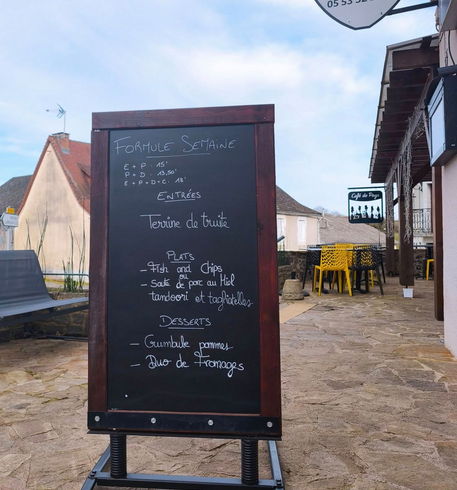 05 53 52
FORMULE SEMAINE
E + P : 15'
P + D : 13,50'
E + P + D + C : 18'
ENTRÉES
Terrine de truite
PLATS
- Fish and Chips
ou
- Sauté de porc au Miel
tandoori et tagliatelles
DESSERTS
- Crumbule pommes
- Duo de Fromages
Café de Pays